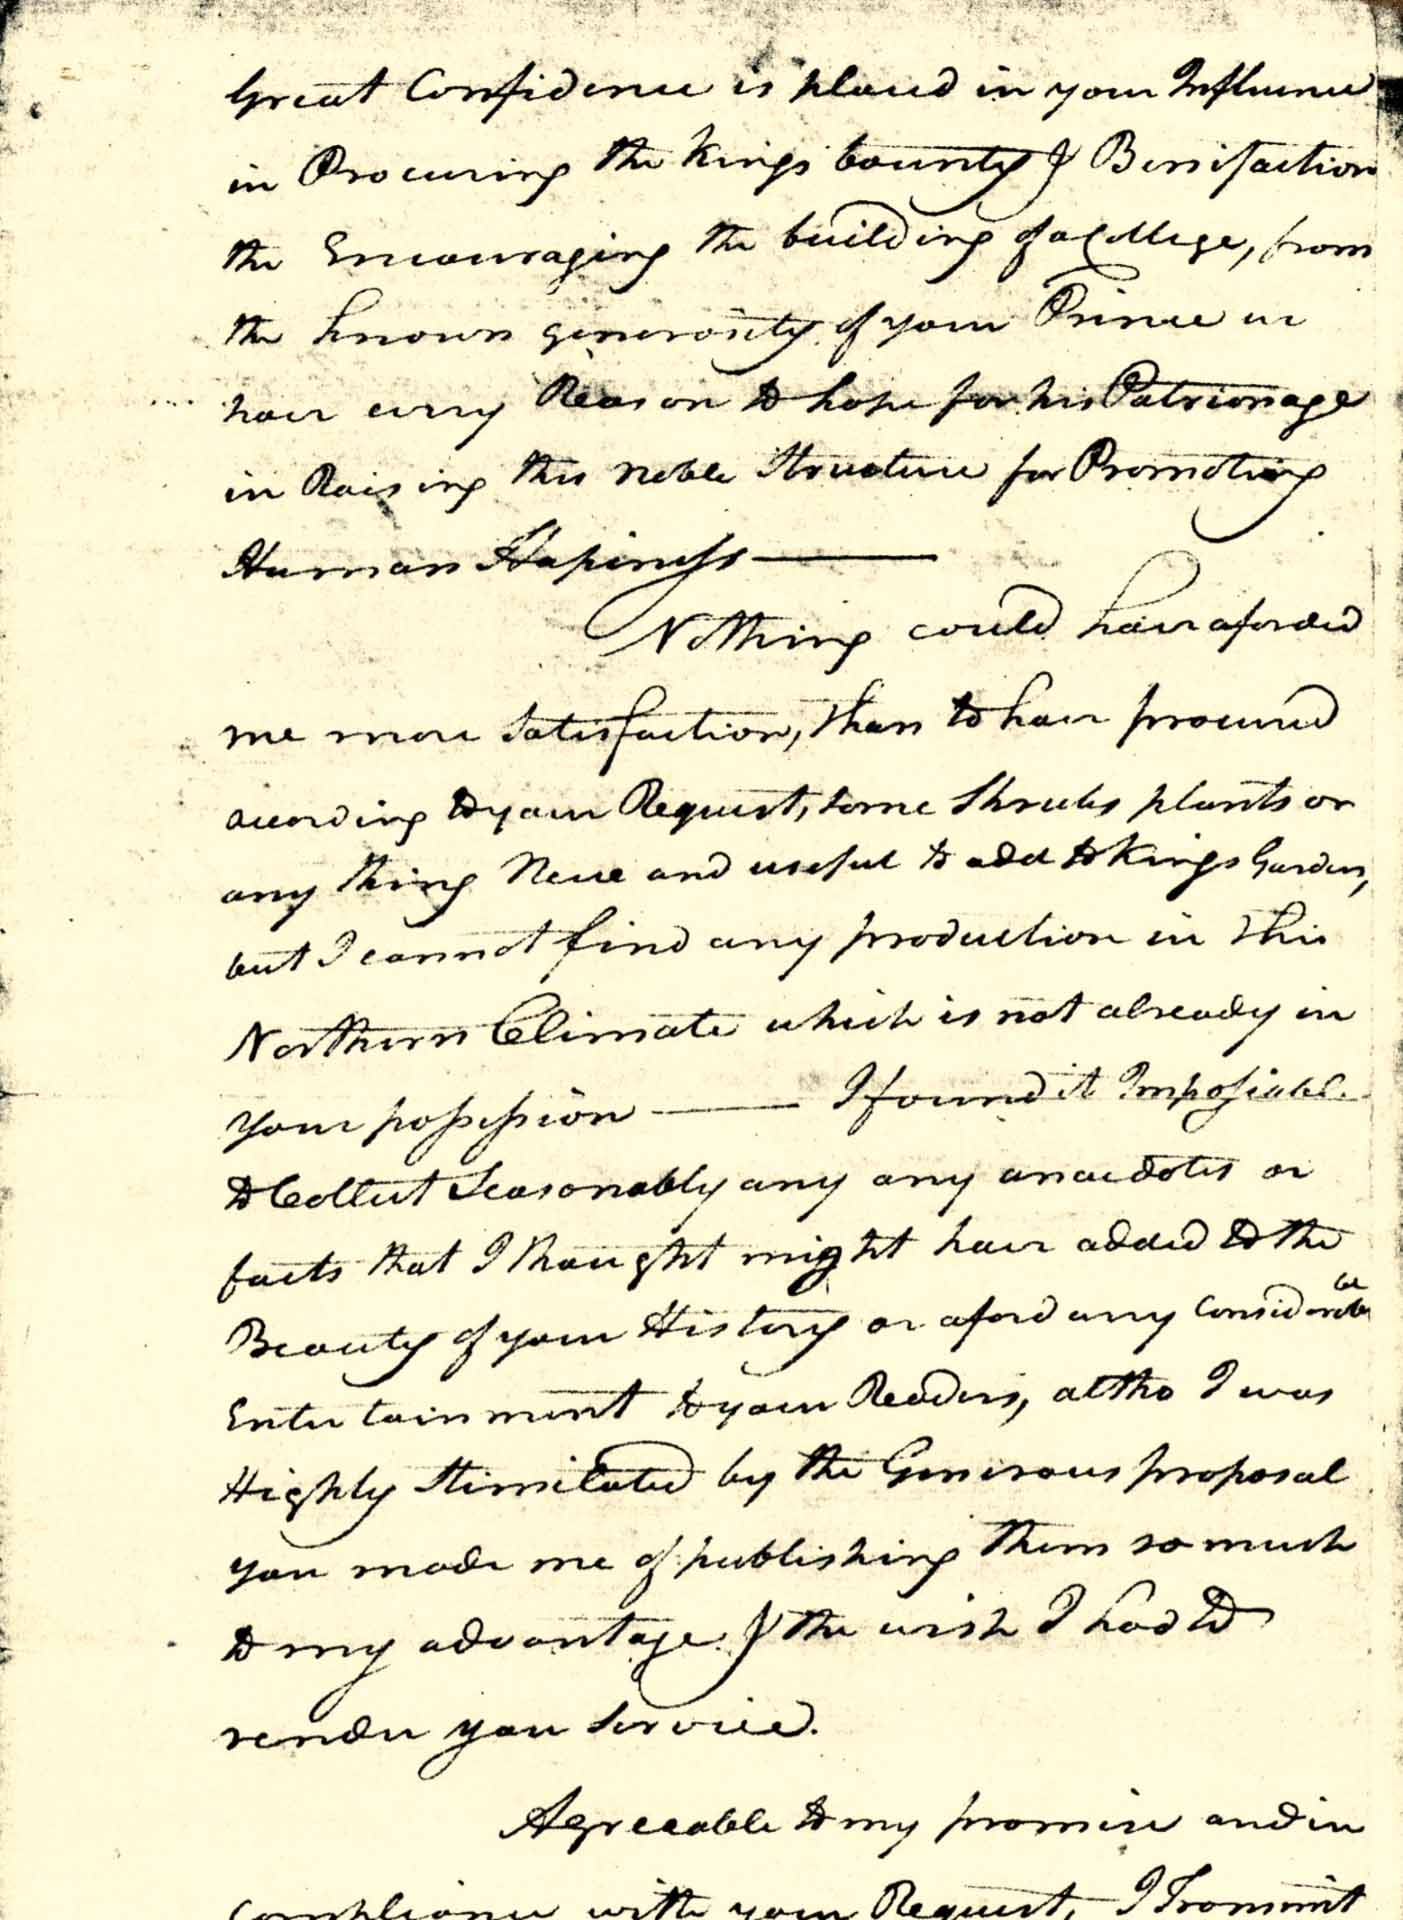 Great Confidence is placed in your Influence
in Procuring the Kings bounty & Benifaction
the Encouraging the building of a College, from
the known generosity of your Prince we
have every Reason to hope for his Patrionage
in Raising this noble Structure for Promoting
Human Hapiness —
Nothing could have aforded
me more Satisfaction, than to have procured
according to your Request, some Shrubs plants or
any thing New and useful to add to Kings Garden,
but I cannot find any production in this
Northern Climate which is not already in
your possession — I found it Imposiable
to Collect Seasonably any any anacdotes or
facts that I thought might have added to the
Beauty of your History or aford any Considerable
Entertainment to your Readers, altho I was
Highly Stimilated by the Generous proposal
you made me of publishing them so much
to my advantage & the wish I had to
render you Service.
Agreeable to my promise and in
compliance with your Request, I Transmit